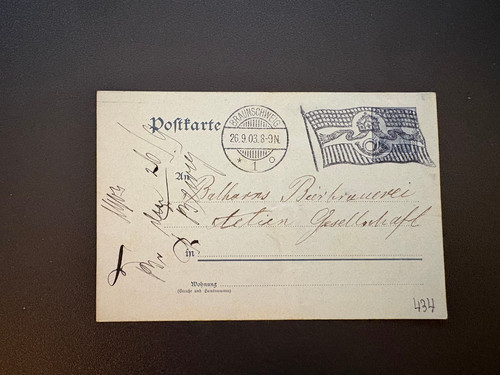 Postkarte
BRAUNSCHWEIG
26.9.03.8-9N.
* 1 o
An
Balhorns Bierbrauerei
Actien Gesellschaft
in
Wohnung
(Straße und Hausnummer)
434